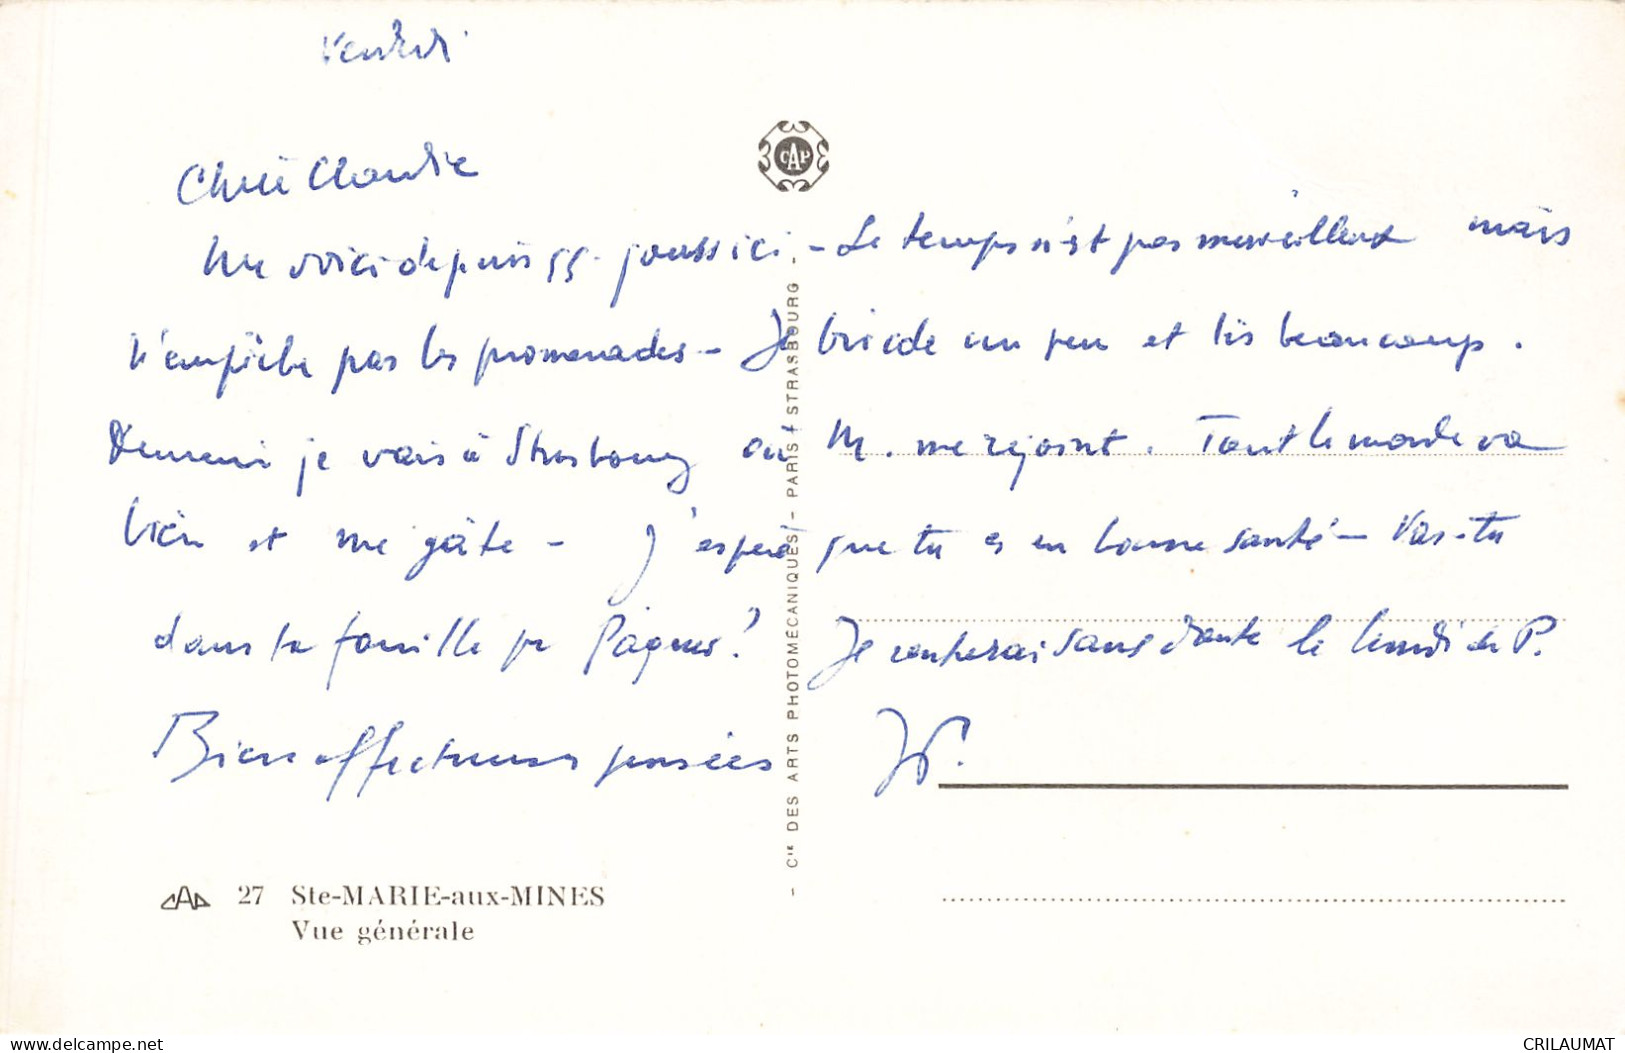 Vendredi
Chère Claudie
Me voici depuis qq. jours ici - Le temps n'est pas merveilleux mais
n'empêche pas les promenades - Je brode un peu et lis beaucoup.
Demain je vais à Strasbourg où M. me rejoint. Tout le monde va
bien et me gâte - J'espère que tu es en bonne santé - Vas-tu
dans ta famille pr Pâques? Je rentrerai sans doute le lundi de P.
Bien affectueuses pensées
CAP
- Cie DES ARTS PHOTOMÉCANIQUES - PARIS - STRASBOURG -
CAP 27 Ste-MARIE-aux-MINES
Vue générale
delcampe.net
CRILAUMAT